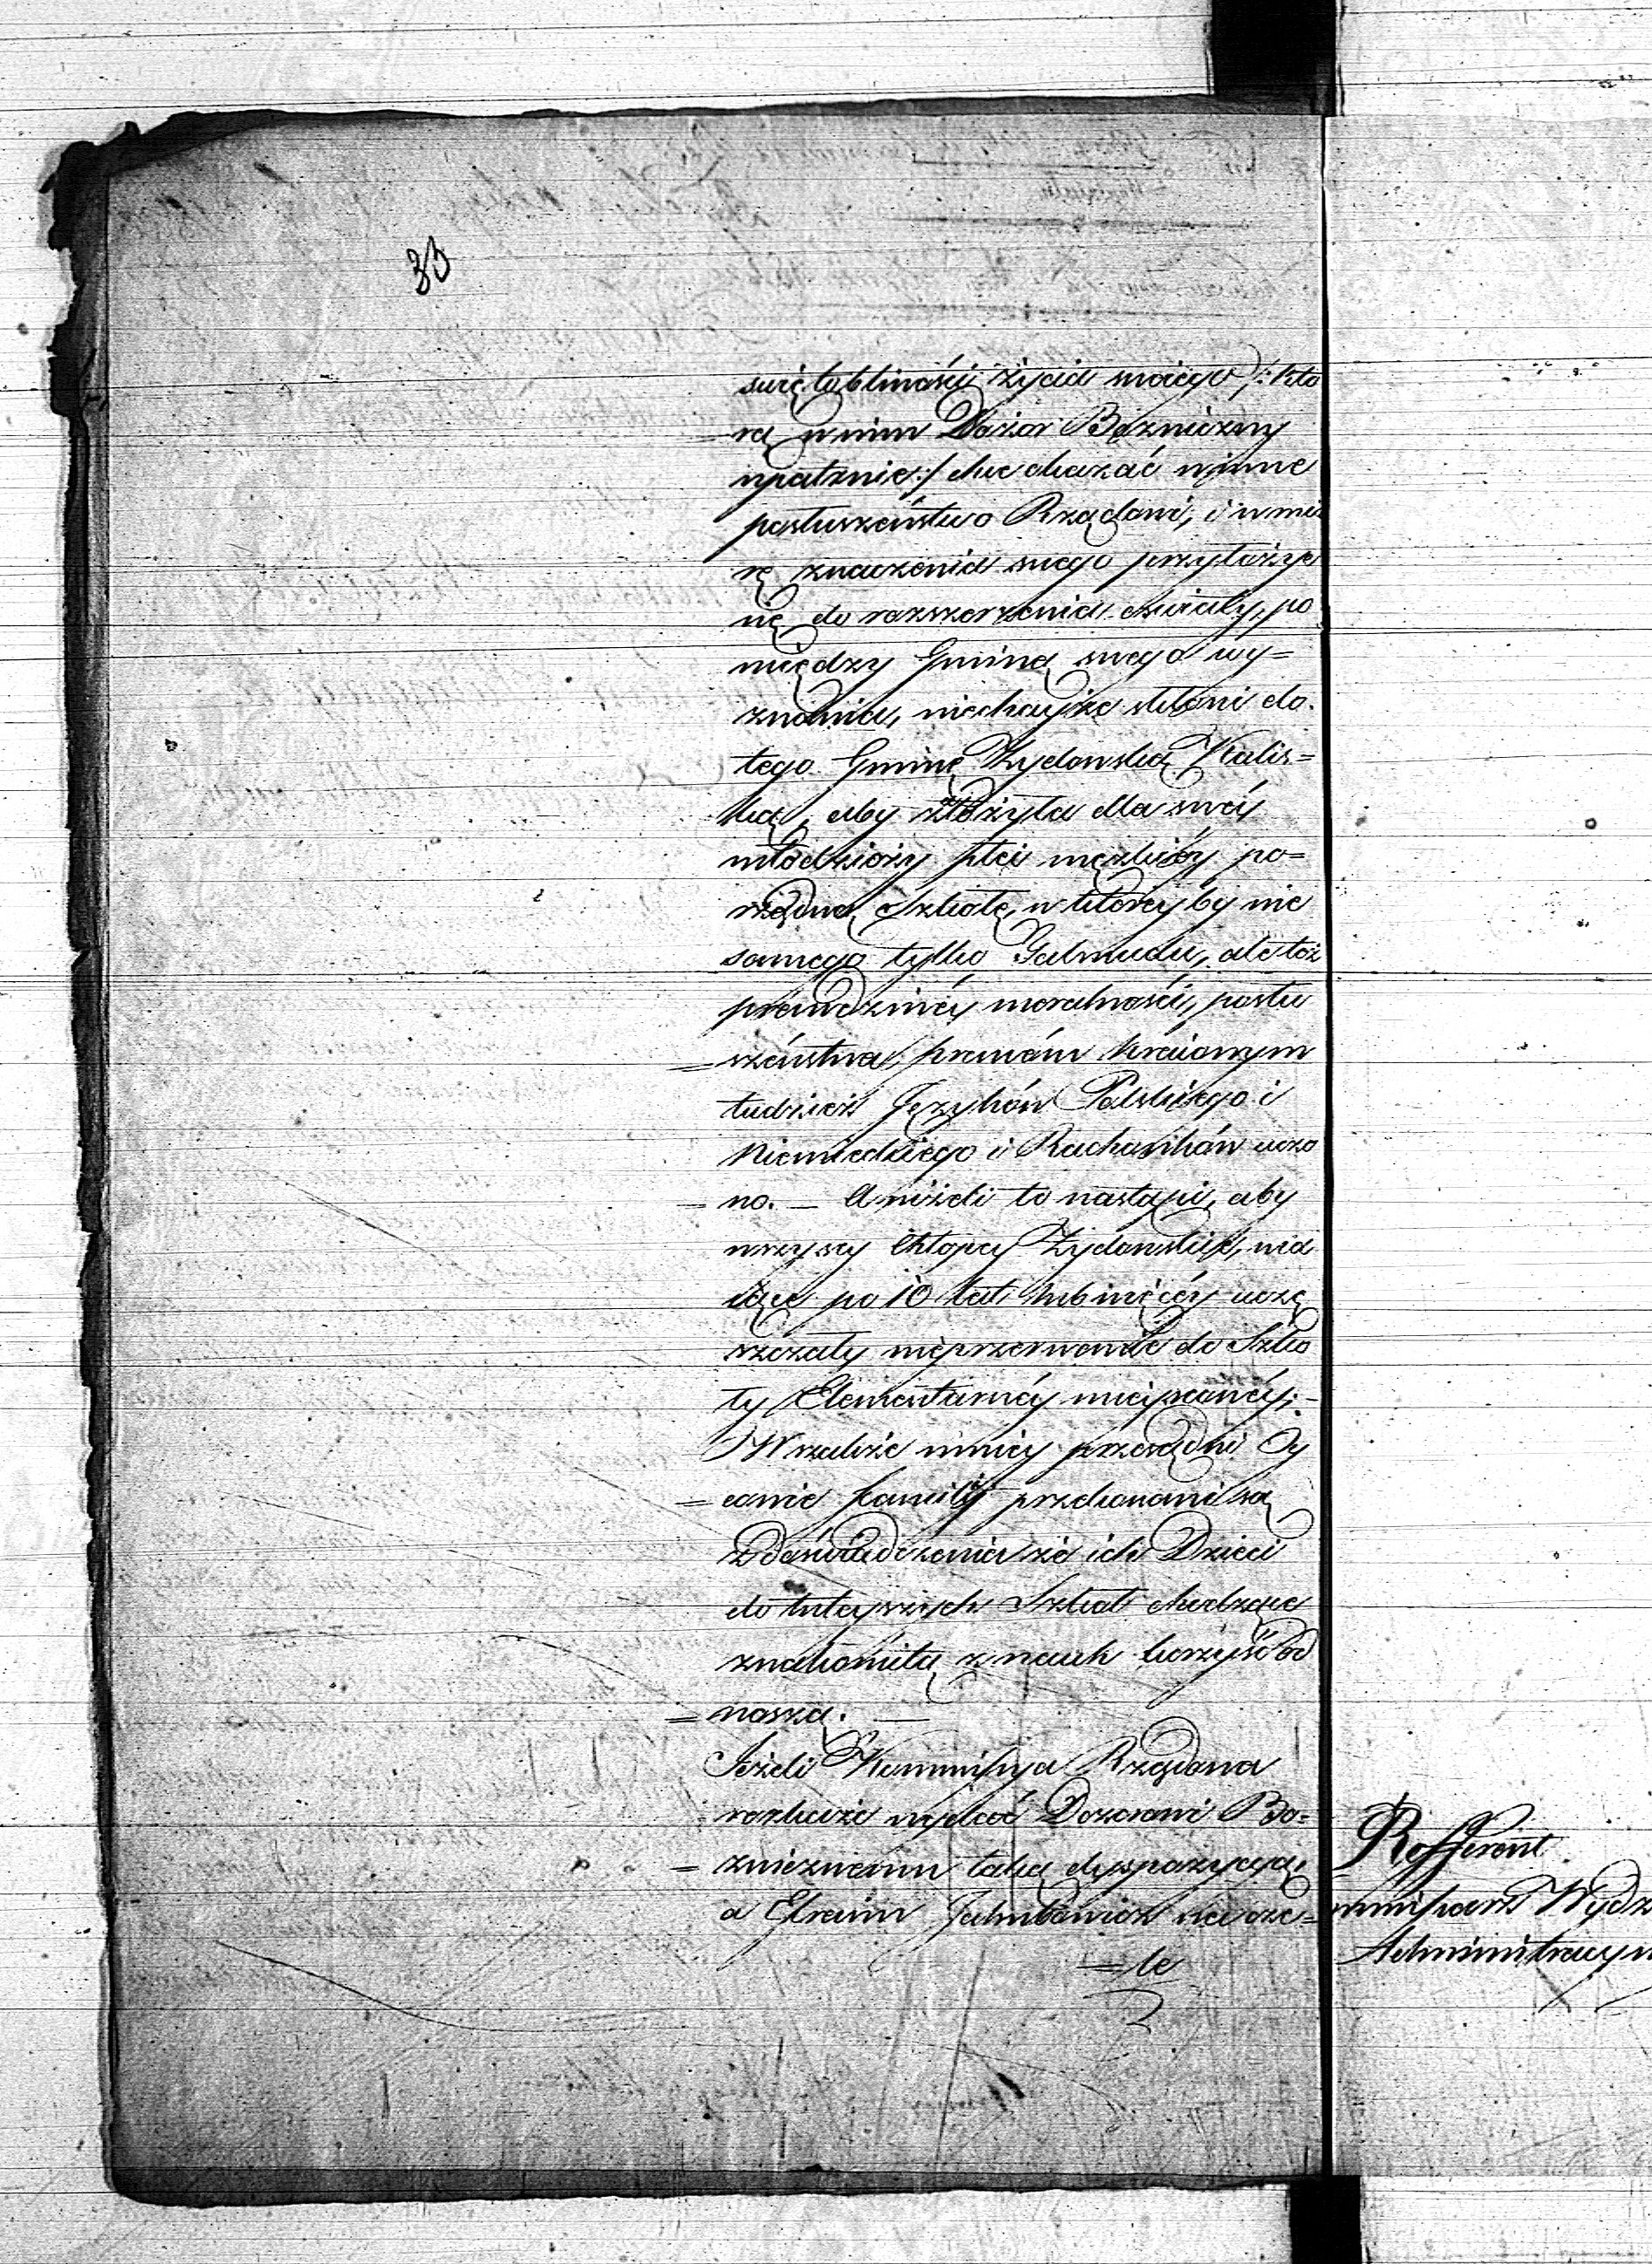 33
swiętobliwości życia swoiego /: któ
rą w nim Dozór Bożniczny
upatruie :/ chce okazać winne
posłuszeństwo Rządowi, i w mia
rę znaczenia swego przyłożyć
się do rozszerzenia oświaty, po
między Gminą swego wy=
znania, niechayże skłoni do
tego Gminę Żydowską Kalis=
ką, aby złożyła dla swéy
młodzieży płci męzkiéy po=
rządną Szkołę, w któreyby nie
samego tylko Talmudu, ale też
prawdziwéy moralności, posłu
=szeństwa prawóm kraiowym
tudzież Języków Polskiego i
Niemieckiego i Rachunków uczo
=no. — A niżeli to nastąpi, aby
wszyscy Chłopcy Żydowskie, ma
iące po 10 lat lub więcéy uczę
szczały nieprzerwanie do Szko
ły Elementarnéy mieyscowéy; -
Wszakże mniey przesądni Oy
=cowie familij przekonani są
z doświadczenia że ich Dzieci
do tuteyszych Szkół chodzące
znakomitą z nauk korzyść od
=noszą. —
Jeżeli Kommissya Rządowa
rozkaże wydać Dozorowi Bo=
=żnicznemu taką dyspozycyą,
a Efraim Jakubowicz na cze=
=le
Refferent
mmissarz Wydz
Administracyin